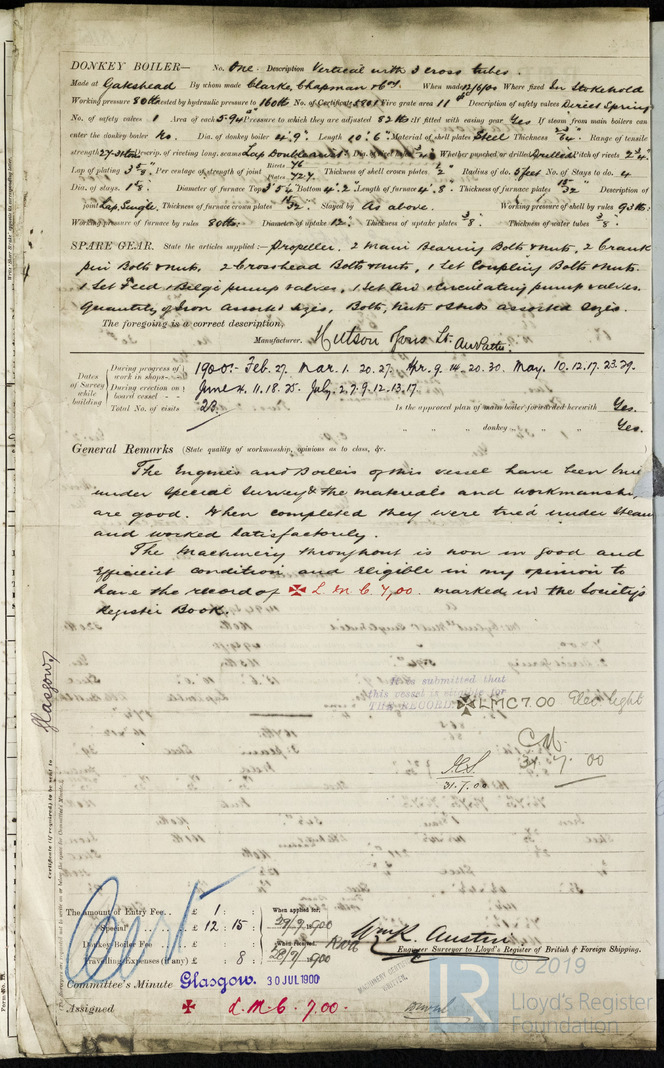 DONKEY BOILER— No. One. Description Vertical with 3 cross tubes.
Made at Gateshead By whom made Clarke, Chapman & Coy. When made 12/6/00 Where fixed In Stokehold
Working pressure 80 lbs tested by hydraulic pressure to 160 lbs No. of Certificate 5801 Fire grate area 11 Description of safety valves Direct Spring
No. of safety valves 1 Area of each 5.94 Pressure to which they are adjusted 82 lb If fitted with easing gear Yes If steam from main boilers can
enter the donkey boiler No. Dia. of donkey boiler 4'.9" Length 10'.6" Material of shell plates Steel Thickness Range of tensile
strength 27-31 tons Descrip. of riveting long. seams Lap Double Whether punched or drilled Drilled Pitch of rivets 2 3/4"
Lap of plating Per centage of strength of joint Rivets 76 Plates 72.7 Thickness of shell crown plates 1/2" Radius of do. 5 feet No. of Stays to do. 4
Dia. of stays. Diameter of furnace Top Bottom 4'.2 Length of furnace 4'.8" Thickness of furnace plates Description of
joint Lap Single Thickness of furnace crown plates Stayed by As above. Working pressure of shell by rules 93 lb:
Working pressure of furnace by rules 80 lbs. Diameter of uptake 12" Thickness of uptake plates 3/8" Thickness of water tubes 3/8"
SPARE GEAR. State the articles supplied:— Propeller. 2 Main Bearing Bolts & Nuts, 2 Crank
pin Bolts & Nuts, 2 Crosshead Bolts & Nuts, 1 Set Coupling Bolts & Nuts.
1 Set Feed & Bilge pump valves, 1 Set Air & Circulating pump valves.
Quantity of Iron assorted sizes, Bolts, Nuts & Studs assorted sizes.
The foregoing is a correct description,
Manufacturer. Hutson & Sons Ld.
Dates of Survey while building
During progress of work in shops - - 1900:- Feb. 27. Mar. 1. 20. 27. Apr. 9. 14. 20. 30. May. 10. 12. 17. 23. 29.
During erection on board vessel - - June 4. 11. 18. 25. July. 2. 7. 9. 12. 13. 17
Total No. of visits 23. Is the approved plan of main boiler forwarded herewith Yes.
" " donkey " " " Yes.
General Remarks (State quality of workmanship, opinions as to class, &c.
The Engines and Boilers of this vessel have been built
under special survey & the materials and workmanship
are good. When completed they were tried under steam
and worked satisfactorily.
The Machinery throughout is now in good and
efficient condition and eligible in my opinion to
have the record of ✠ L M C 7,00. marked in the Society's
Register Book.
Glasgow
It is submitted that
this vessel is eligible for
THE RECORD ✠ LMC 7.00 Elec light
31.7.00
31.7.00
Certificate (if required) to be sent to
The amount of Entry Fee . . £ 1 : :
Special . . £ 12 : 15 :
Donkey Boiler Fee . . £ : :
Travelling Expenses (if any) £ : 8 :
When applied for,
When received,
Cert
Wm R Austin
Engineer Surveyor to Lloyd's Register of British & Foreign Shipping.
Committee's Minute Glasgow. 30 JUL 1900
Assigned ✠ L. M. C. 7.00.
MACHINERY CERTIFICATE WRITTEN.
LR © 2019
Lloyd's Register
Foundation